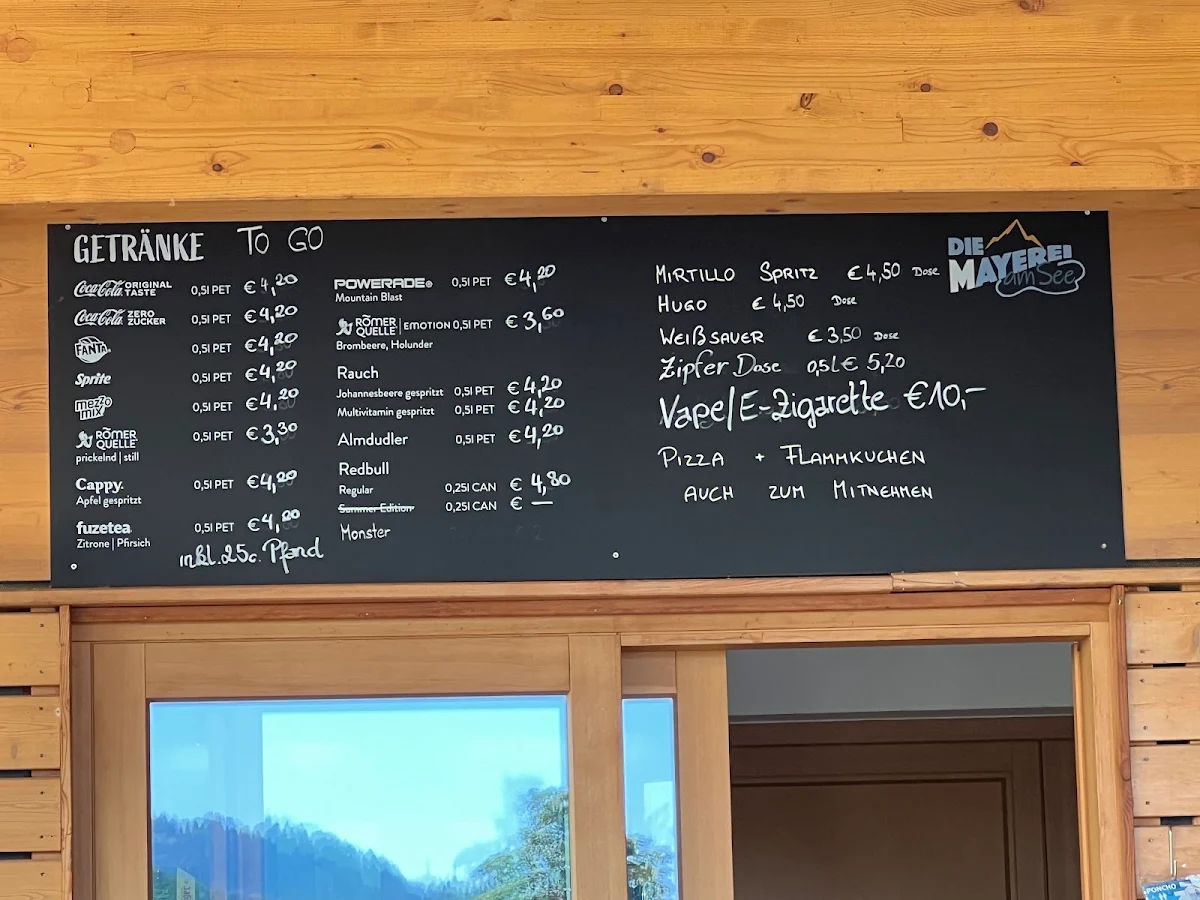 GETRÄNKE TO GO
Coca-Cola ORIGINAL TASTE 0,5l PET € 4,20
Coca-Cola ZERO ZUCKER 0,5l PET € 4,20
FANTA 0,5l PET € 4,20
Sprite 0,5l PET € 4,20
mezzo mix 0,5l PET € 4,20
RÖMER QUELLE 0,5l PET € 3,30
prickelnd | still
Cappy. 0,5l PET € 4,20
Apfel gespritzt
fuzetea 0,5l PET € 4,20
Zitrone | Pfirsich
inkl. 25c. Pfand
POWERADE 0,5l PET € 4,20
Mountain Blast
RÖMER QUELLE | EMOTION 0,5l PET € 3,60
Brombeere, Holunder
Rauch
Johannesbeere gespritzt 0,5l PET € 4,20
Multivitamin gespritzt 0,5l PET € 4,20
Almdudler 0,5l PET € 4,20
Redbull
Regular 0,25l CAN € 4,80
Summer Edition 0,25l CAN € —
Monster
DIE MAYEREI am See
MIRTILLO SPRITZ € 4,50 Dose
HUGO € 4,50 Dose
WEIßSAUER € 3,50 Dose
Zipfer Dose 0,5L € 5,20
Vape/E-Zigarette €10,-
PIZZA + FLAMMKUCHEN
AUCH ZUM MITNEHMEN
PONCHO